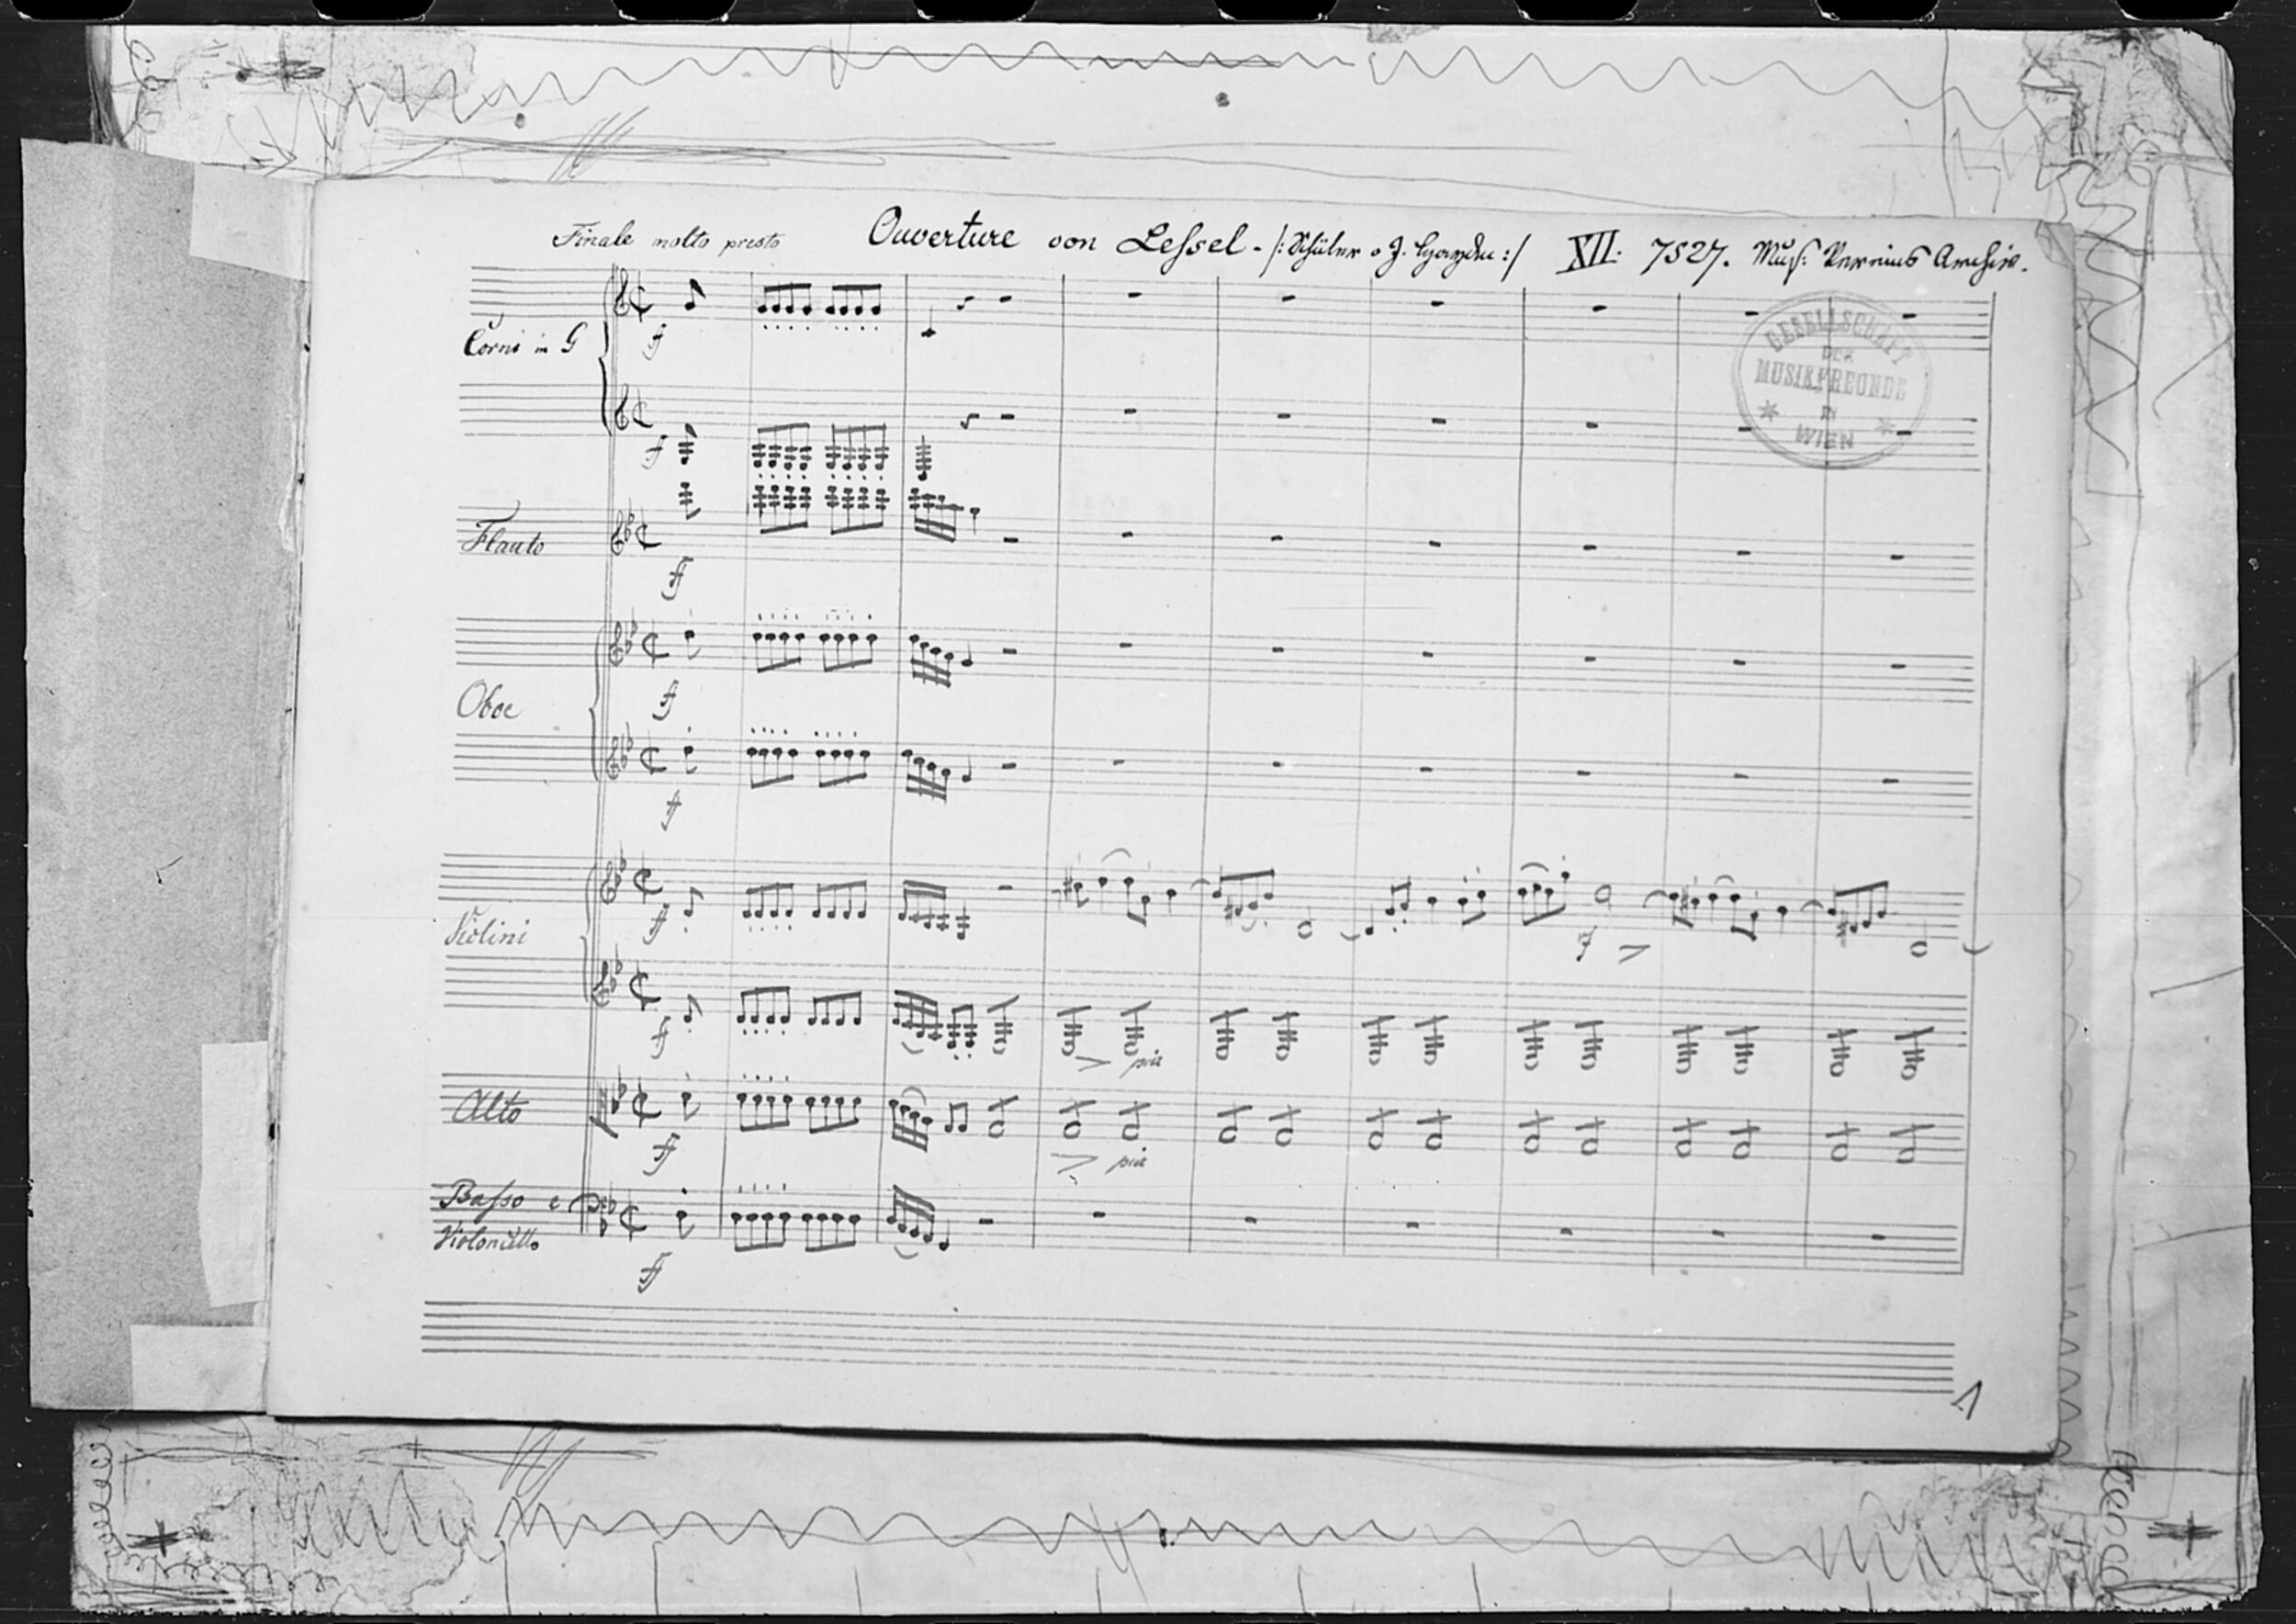 Finale molto presto Ouverture von Lessel - /: Schüler v. J. Haydn :/ XII. 7527. Mus: Vereins Archiv.
Corni in G
f
f
GESELLSCHAFT
DER
MUSIKFREUNDE
IN
WIEN
Flauto
f
Oboe
f
f
Violini
f
f
f
pia
Alto
f
pia
Basso e
Violoncello
f
1